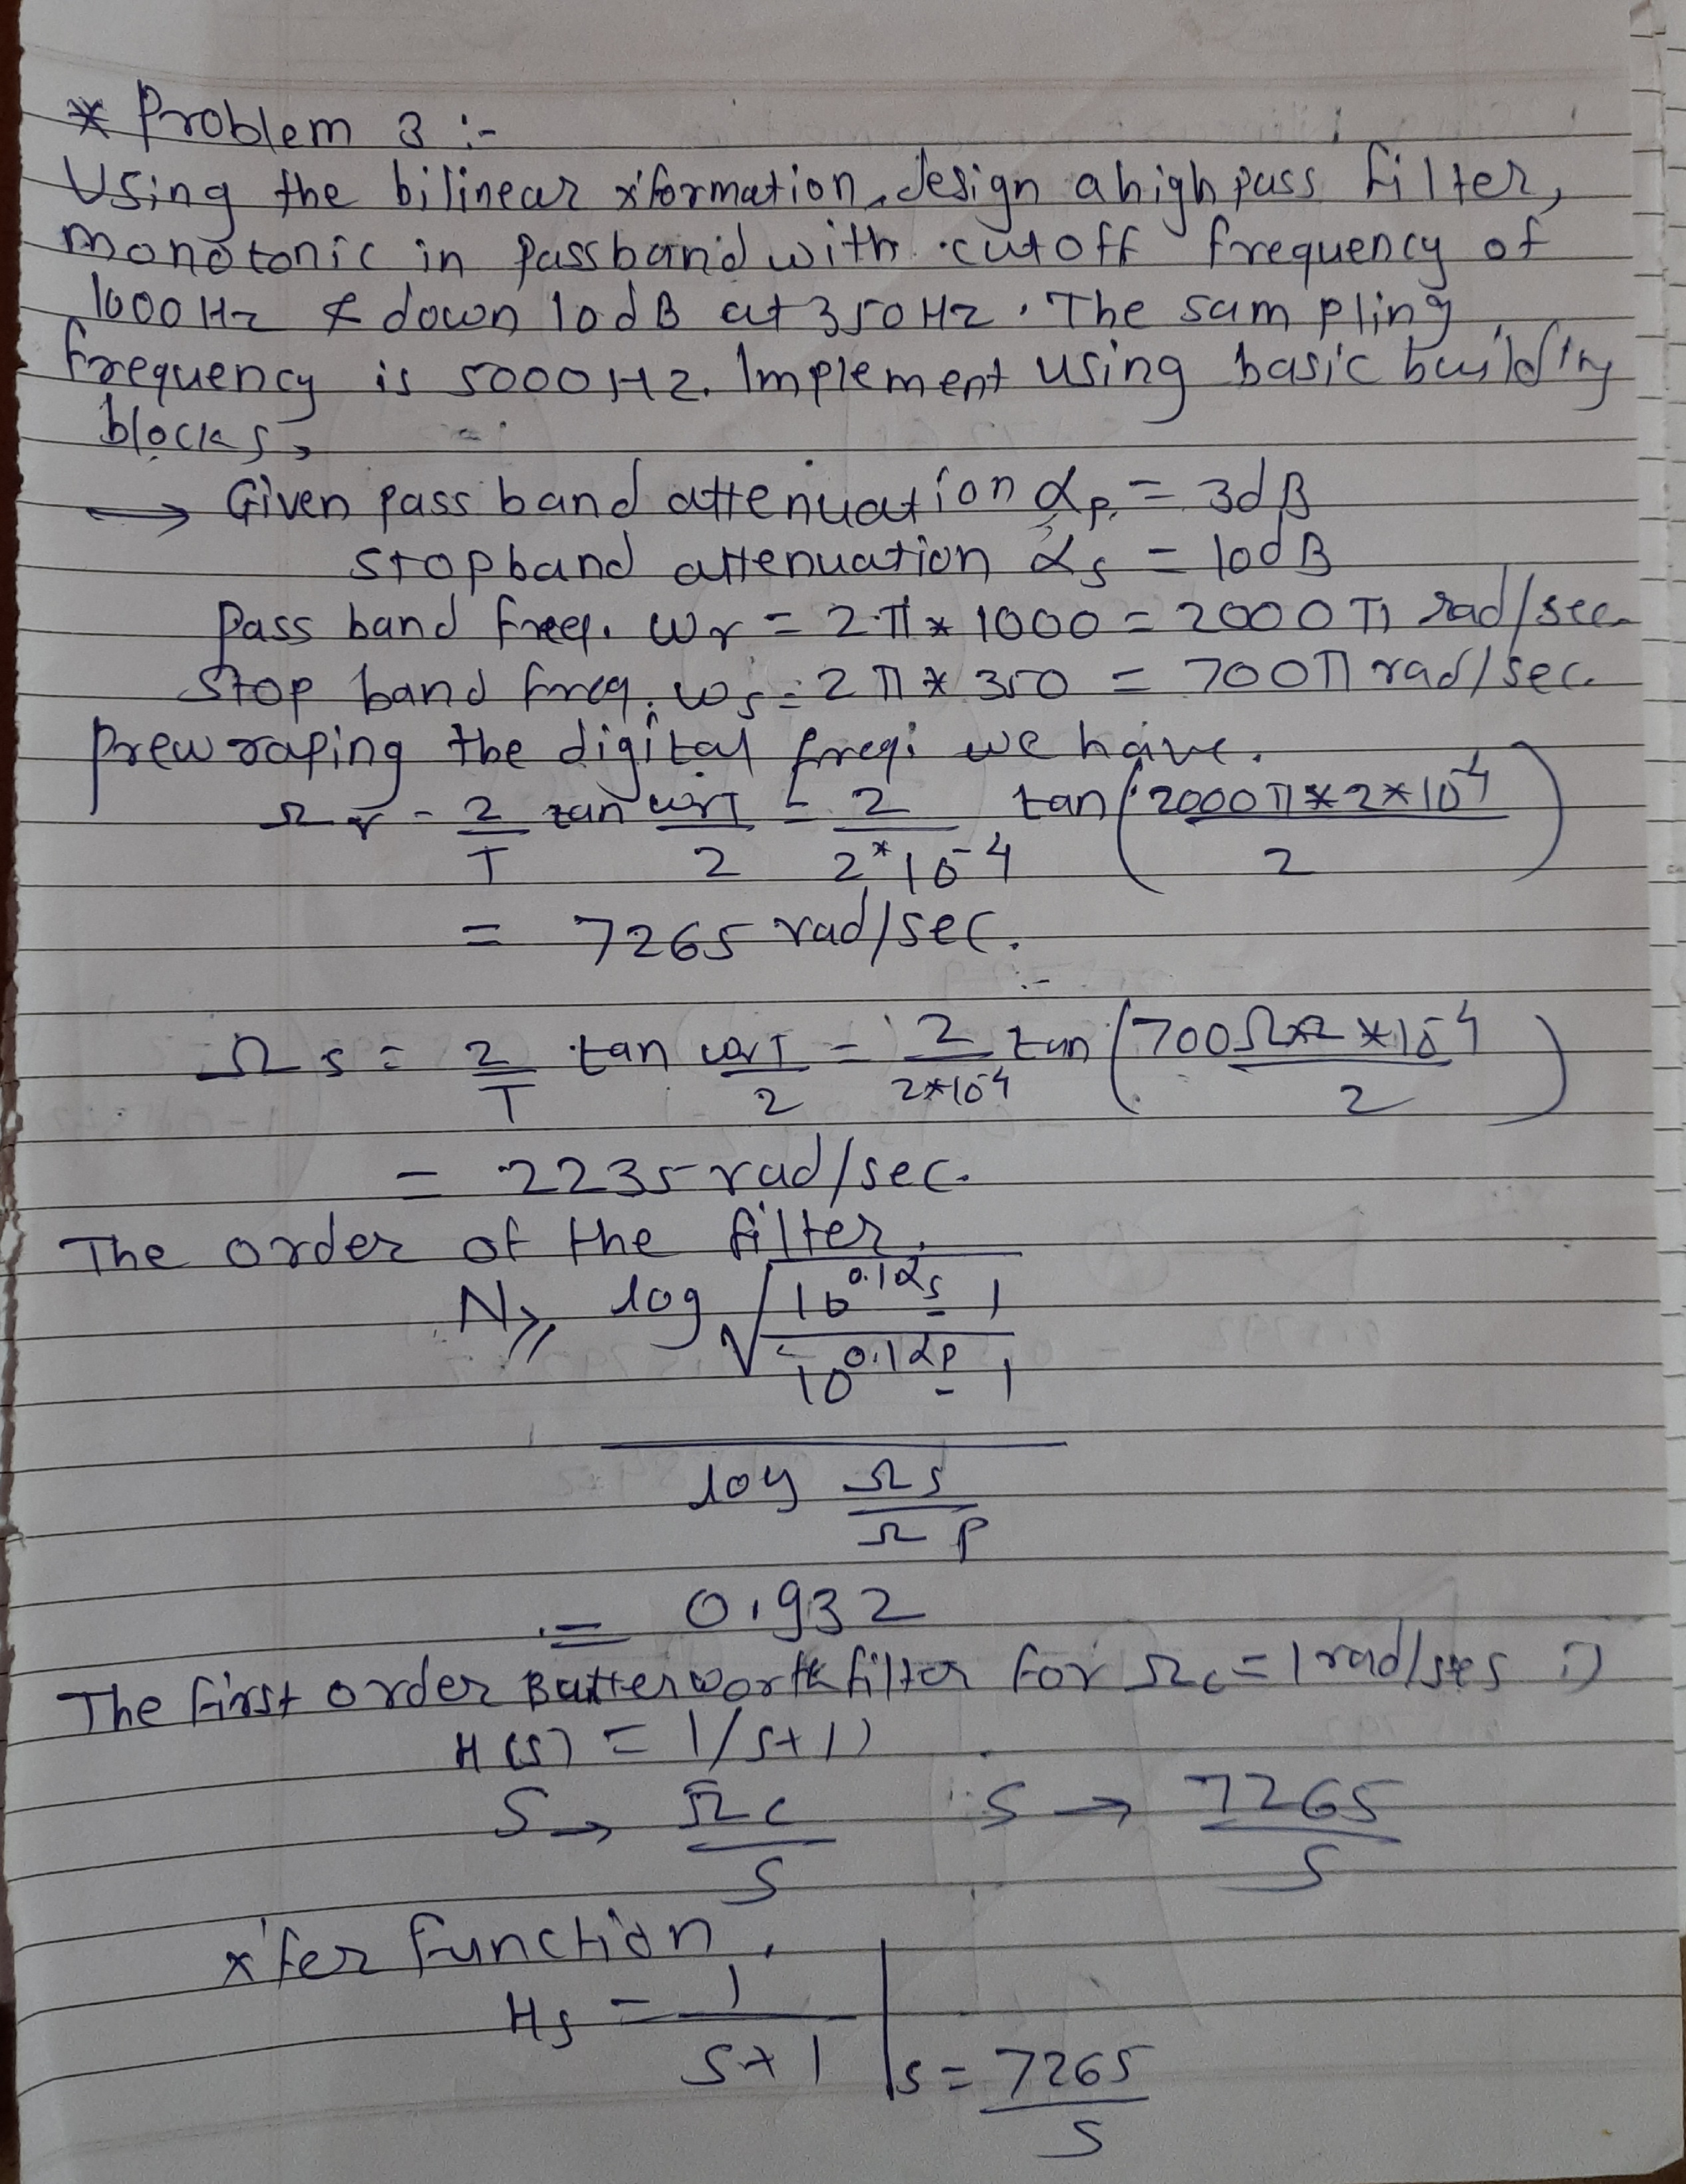 * Problem 3 :-
Using the bilinear x'formation, design a high pass filter,
monotonic in passband with cutoff frequency of
1000 Hz & down 10dB at 350Hz. The sampling
frequency is 5000Hz. Implement using basic building
blocks,
→ Given pass band attenuation αp = 3dB
stopband attenuation αs = 10dB
Pass band freq. ωr = 2π * 1000 = 2000π rad/sec
Stop band freq. ωs = 2π * 350 = 700π rad/sec.
Prewraping the digital freq. we have.
Ωr = 2/T tan ωrT/2 = 2/2*10^-4 tan (2000π*2*10^-4/2)
= 7265 rad/sec.
Ωs = 2/T tan ωrT/2 = 2/2*10^-4 tan (700Ω*2*10^-4/2)
= 2235 rad/sec.
The order of the filter.
N ≥ log √(10^0.1αs - 1 / 10^0.1αp - 1)
log Ωs/Ωp
= 0.932
The first order Butterworth filter for Ωc = 1 rad/
H(s) = 1/s+1)
S → Ωc/S S → 7265/S
x'fer function,
Hs = 1/S+1 | s = 7265/S